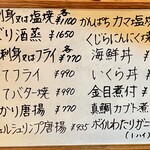 刺身又は塩焼 各¥1100
がり酒蒸 ¥1650
刺身又はフライ 各¥770
てフライ ¥990
てバター焼 ¥990
かり唐揚 ¥770
ェルシュリンプ唐揚 ¥935
かんぱちカマ塩焼
くじらにんにく焼
海鮮丼
いくら丼
金目煮付
真鯛カブト煮
ボイルわたりガニ
(1パイ)